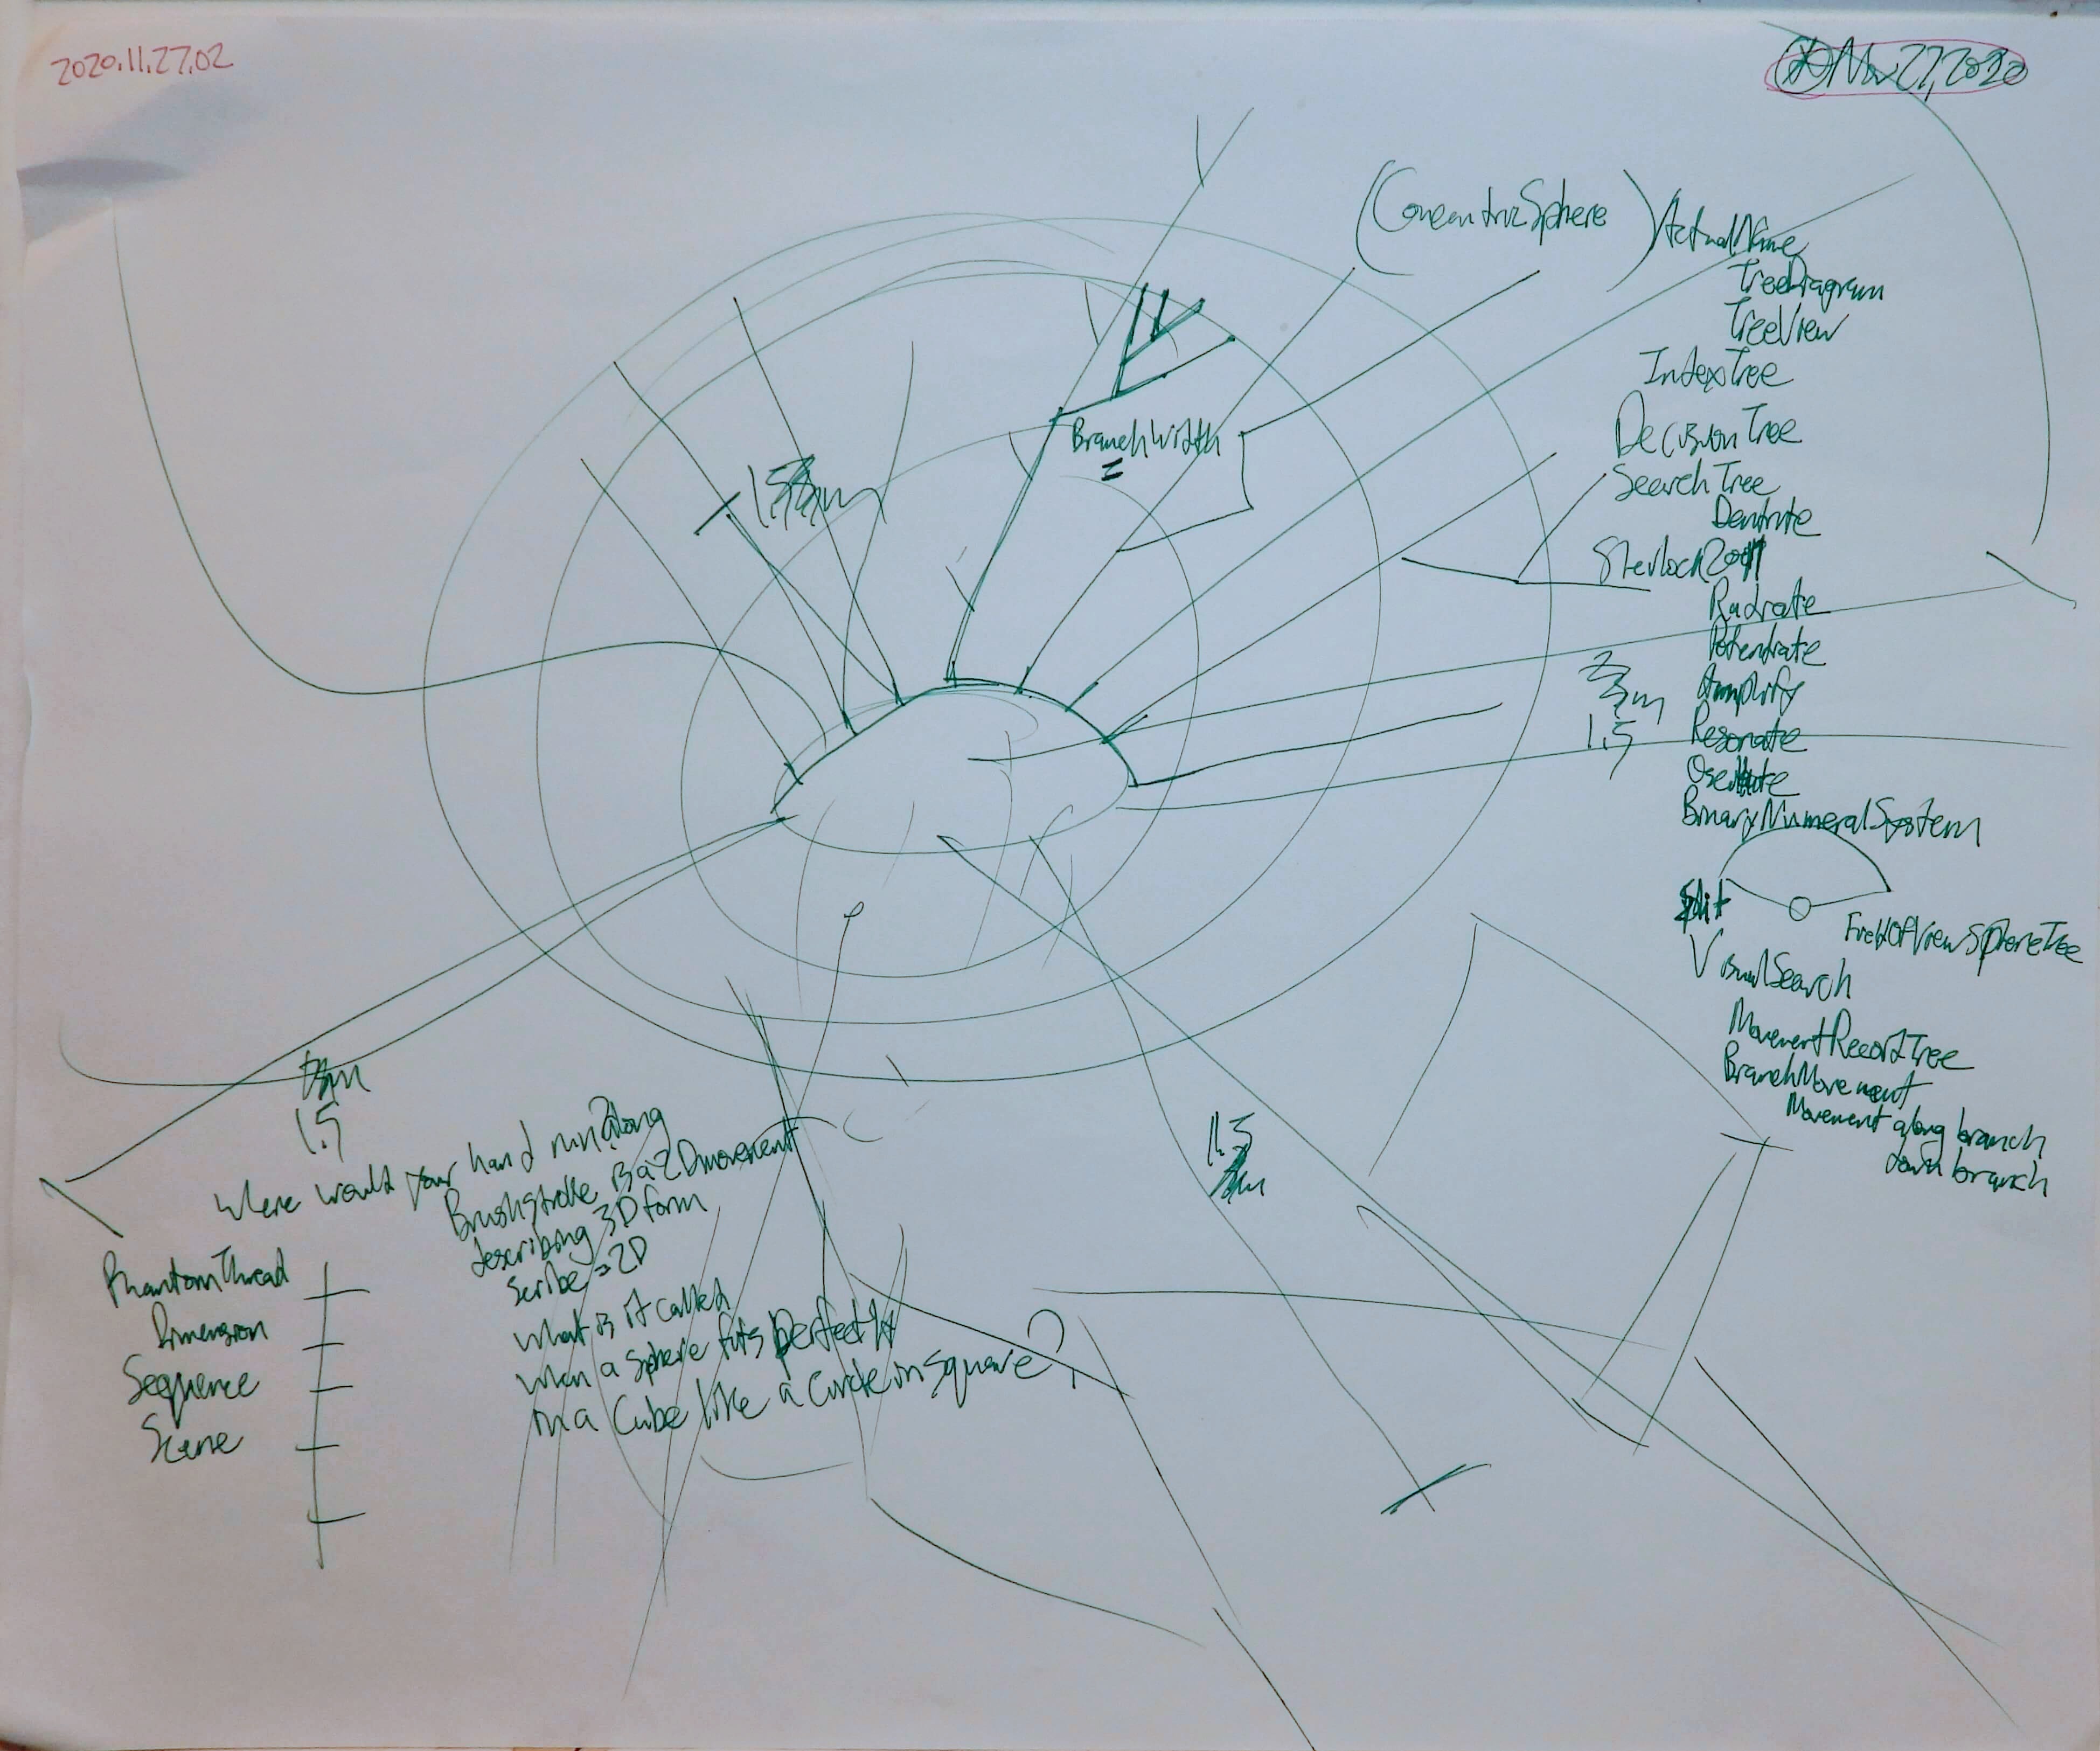 2020.11.27.02
Nov 27, 2020
(ConcentricSphere)
ActualName
TreeDiagram
TreeView
IndexTree
DecisionTree
SearchTree
Dendrite
Sherlock2011
Radiate
Potentiate
Amplify
Resonate
Oscillate
BinaryNumeralSystem
Split
FieldOfViewSphereTree
VisualSearch
MovementRecordTree
BranchMovement
Movement along branch
down branch
BranchWidth
=
1.5
m
1.5
1.5
1.5
Where would your hand run along
Brushstroke is a 2D movement
describing 3D form
Scribe = 2D
What is it called
when a sphere fits perfectly
in a Cube like a Circle in square?
PhantomThread
Dimension
Sequence
Scene